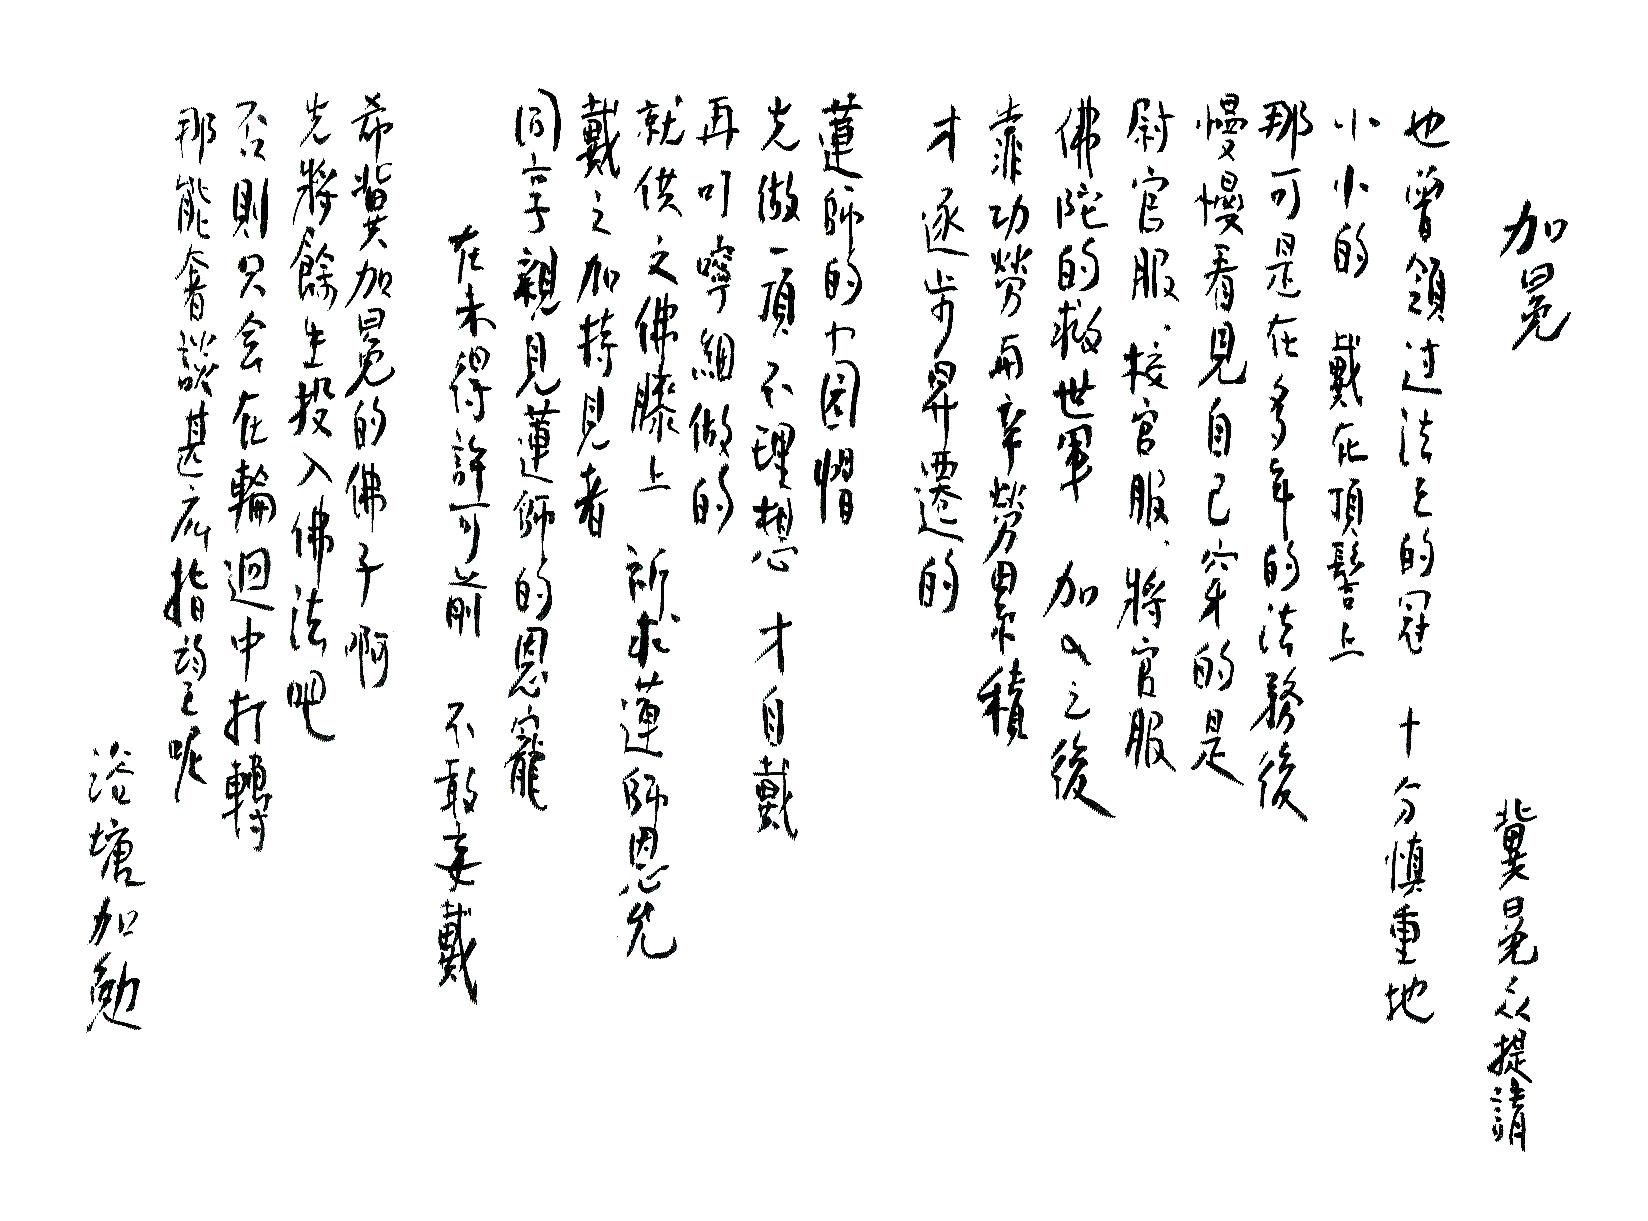 加冕
冀冕众提請
也曾領过法王的冠 十分慎重地
小小的 戴在頂髻上
那可是在多年的法務後
慢慢看見自己穿的是
尉官服、校官服、將官服
佛陀的救世軍 加入之後
靠功勞再辛勞累積
才逐步昇遷的
蓮師的
先做一頂不理想 才自戴
再叮嚀細做的
就供之佛膝上 祈求蓮師恩允
戴之加持見者
同享親見蓮師的恩寵
在未得許可前 不敢妄戴
希冀加冕的佛子啊
先將餘生投入佛法吧
否則只会在輪迴中打轉
那能奢談甚麼指望呢
浴塘加勉